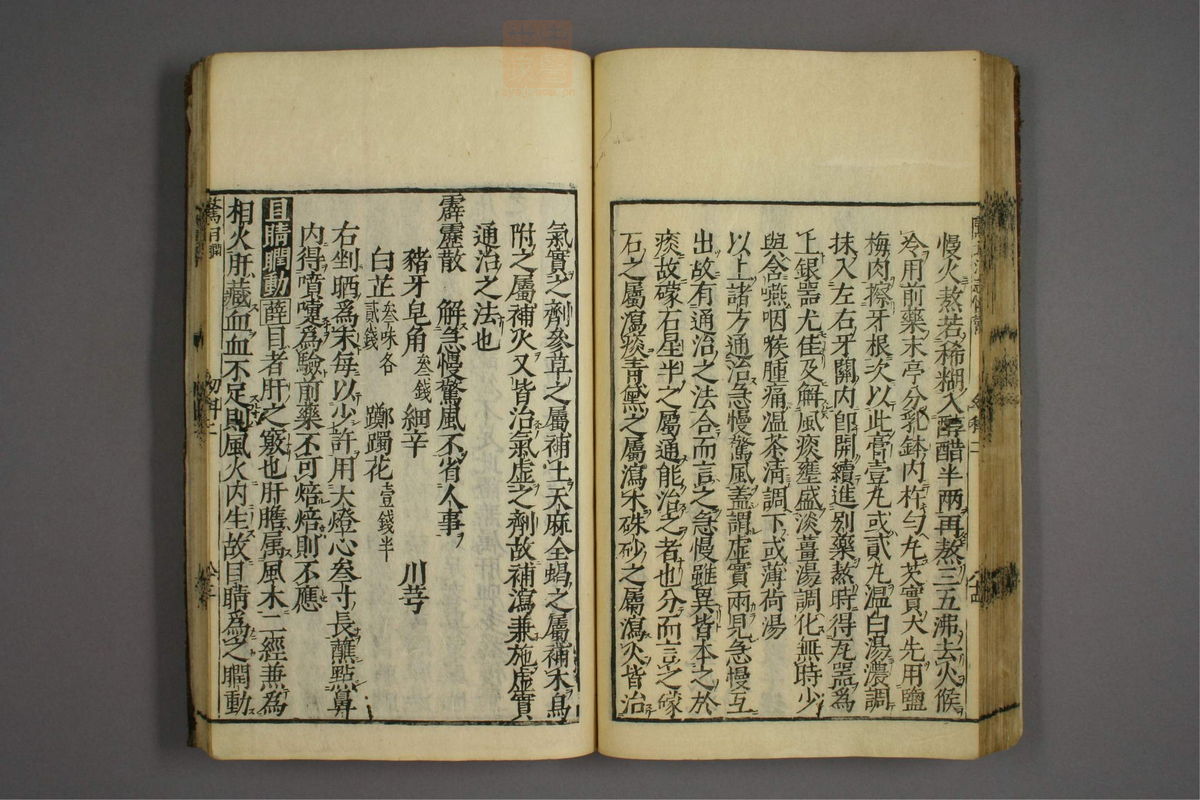 慢火熬若稀糊入醇醋半兩再熬三五沸去火候
冷用前藥末亭分乳鉢内杵勻丸芡實大先用鹽
梅肉擦牙根次以此膏壹丸或貳丸溫白湯濃調
抹入左右牙關内即開續進别藥熬時得瓦器為
上銀器尤佳及解風痰壅盛淡薑湯調化無時少
與含嚥咽喉腫痛溫茶清調下或薄荷湯
以上諸方通治急慢驚風蓋謂虛實兩見急慢互
出故有通治之法合而言之急慢雖異皆本之於
痰故礞石星半之屬通能治之者也分而言之
石之屬瀉痰青黛之屬瀉木硃砂之屬瀉火皆治
氣實之劑參草之屬補土天麻全蝎之屬補木烏
附之屬補火又皆治氣虛之劑故補瀉兼施虛實
通治之法也
霹靂散 解急慢驚風不省人事
豬牙皂角叁錢 細辛 川芎
白芷叁味各貳錢 躑躅花壹錢半
右剉晒為末每以少許用大燈心叁寸長蘸點鼻
内得噴嚏為驗前藥不可焙焙則不應
目睛瞤動 薛 目者肝之竅也肝膽属風木二經兼為
相火肝藏血血不足則風火内生故目睛為之瞤動